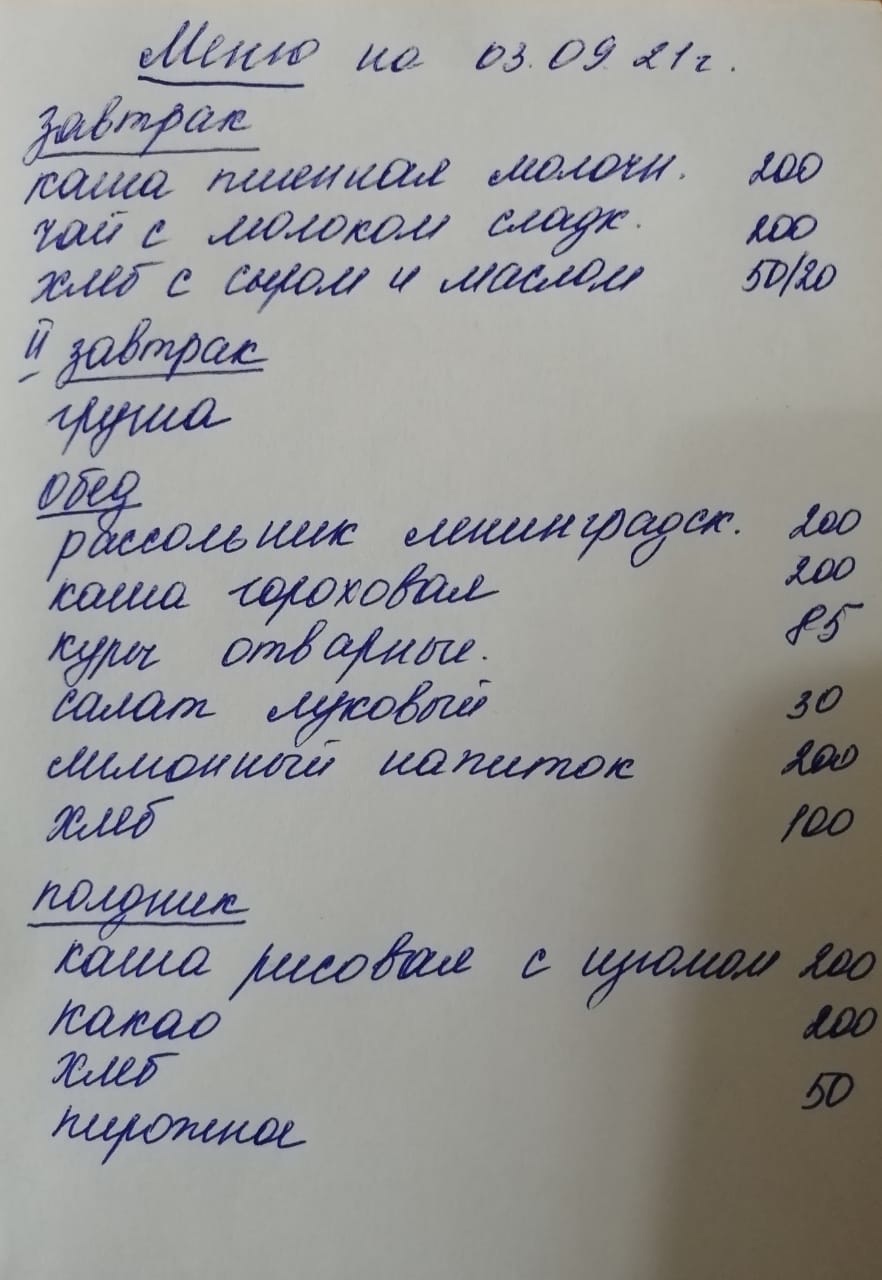 Меню на 03.09.21г.
завтрак
каша пшенная молочн. 200
чай с молоком сладк. 200
хлеб с сыром и маслом 50/20
II завтрак
груша
обед
рассольник ленинградск. 200
каша гороховая 200
куры отварные. 85
салат луковый 30
лимонный напиток 200
хлеб 100
полдник
каша рисовая с изюмом 200
какао 200
хлеб 50
пирожное